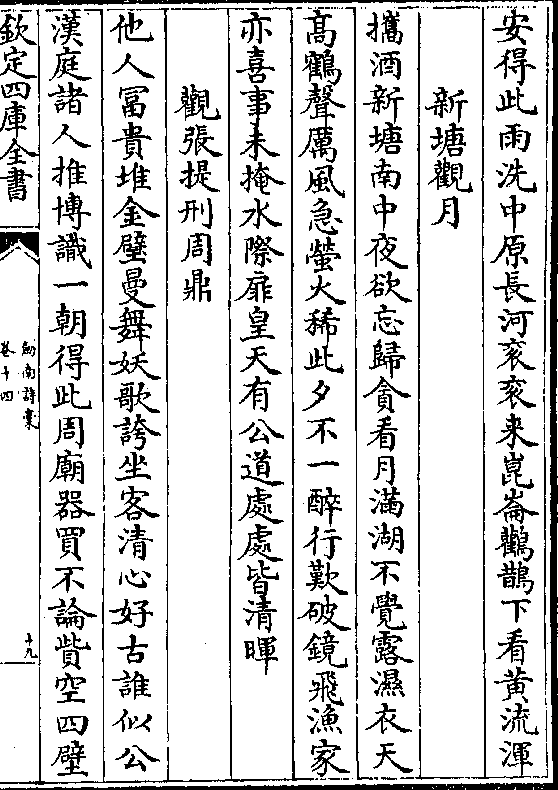 安得此雨洗中原長河衮衮来崑崙鸛鵲下看黄流渾
新塘觀月
攜酒新塘南中夜欲忘歸貪看月滿湖不覺露濕衣天
髙鶴聲厲風急螢火稀此夕不一醉行歎破鏡飛漁家
亦喜事未掩水際扉皇天有公道處處皆清暉
觀張提刑周鼎
他人冨貴堆金璧曼舞妖歌誇坐客清心好古誰似公
漢庭諸人推博識一朝得此周廟器買不論貲空四壁
欽定四庫全書
劍南詩藁
卷十四
十九